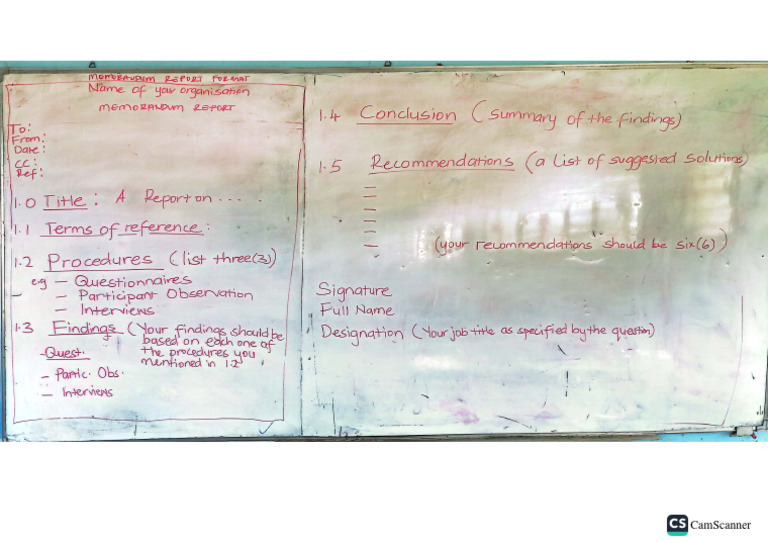 MEMORANDUM REPORT FORMAT
Name of your organisation
MEMORANDUM REPORT
To:
From:
Date:
CC:
Ref:
1.0 Title: A Report on .....
1.1 Terms of reference:
1.2 Procedures (list three(3))
e.g - Questionnaires
- Participant Observation
- Interviews
1.3 Findings (Your findings should be
based on each one of
the procedures you
mentioned in 1.2
- Quest.
- Partic. Obs.
- Interviews
1.4 Conclusion (summary of the findings)
1.5 Recommendations (a list of suggested solutions)
-
-
-
-
-
- (your recommendations should be six(6))
Signature
Full Name
Designation (Your job title as specified by the question)
CS CamScanner